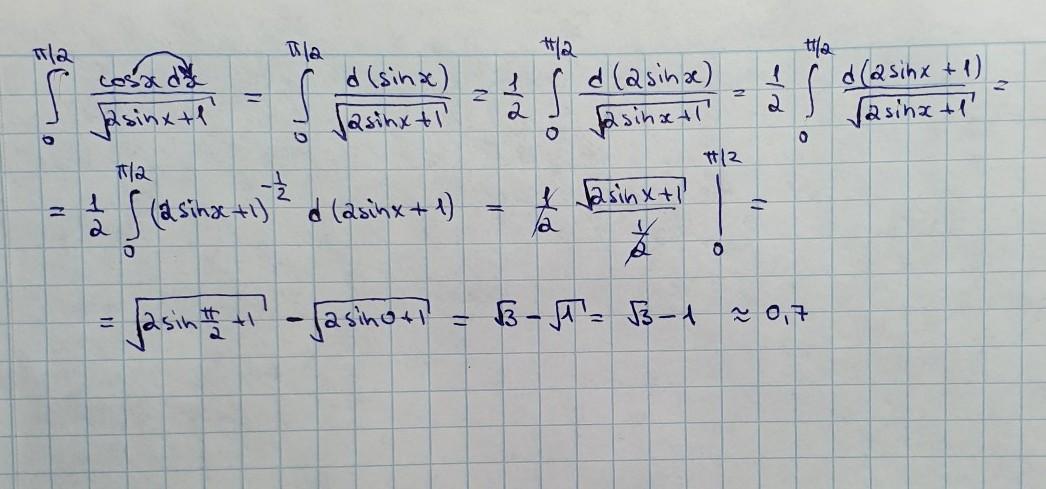 ∫₀^{π/2} cosx dx / √(2sinx+1) = ∫₀^{π/2} d(sinx) / √(2sinx+1) = 1/2 ∫₀^{π/2} d(2sinx) / √(2sinx+1) = 1/2 ∫₀^{π/2} d(2sinx+1) / √(2sinx+1) =
= 1/2 ∫₀^{π/2} (2sinx+1)^{-1/2} d(2sinx+1) = 1/2 √(2sinx+1) / (1/2) |₀^{π/2} =
= √(2sin π/2 +1) - √(2sin0+1) = √3 - √1 = √3 - 1 ≈ 0,7